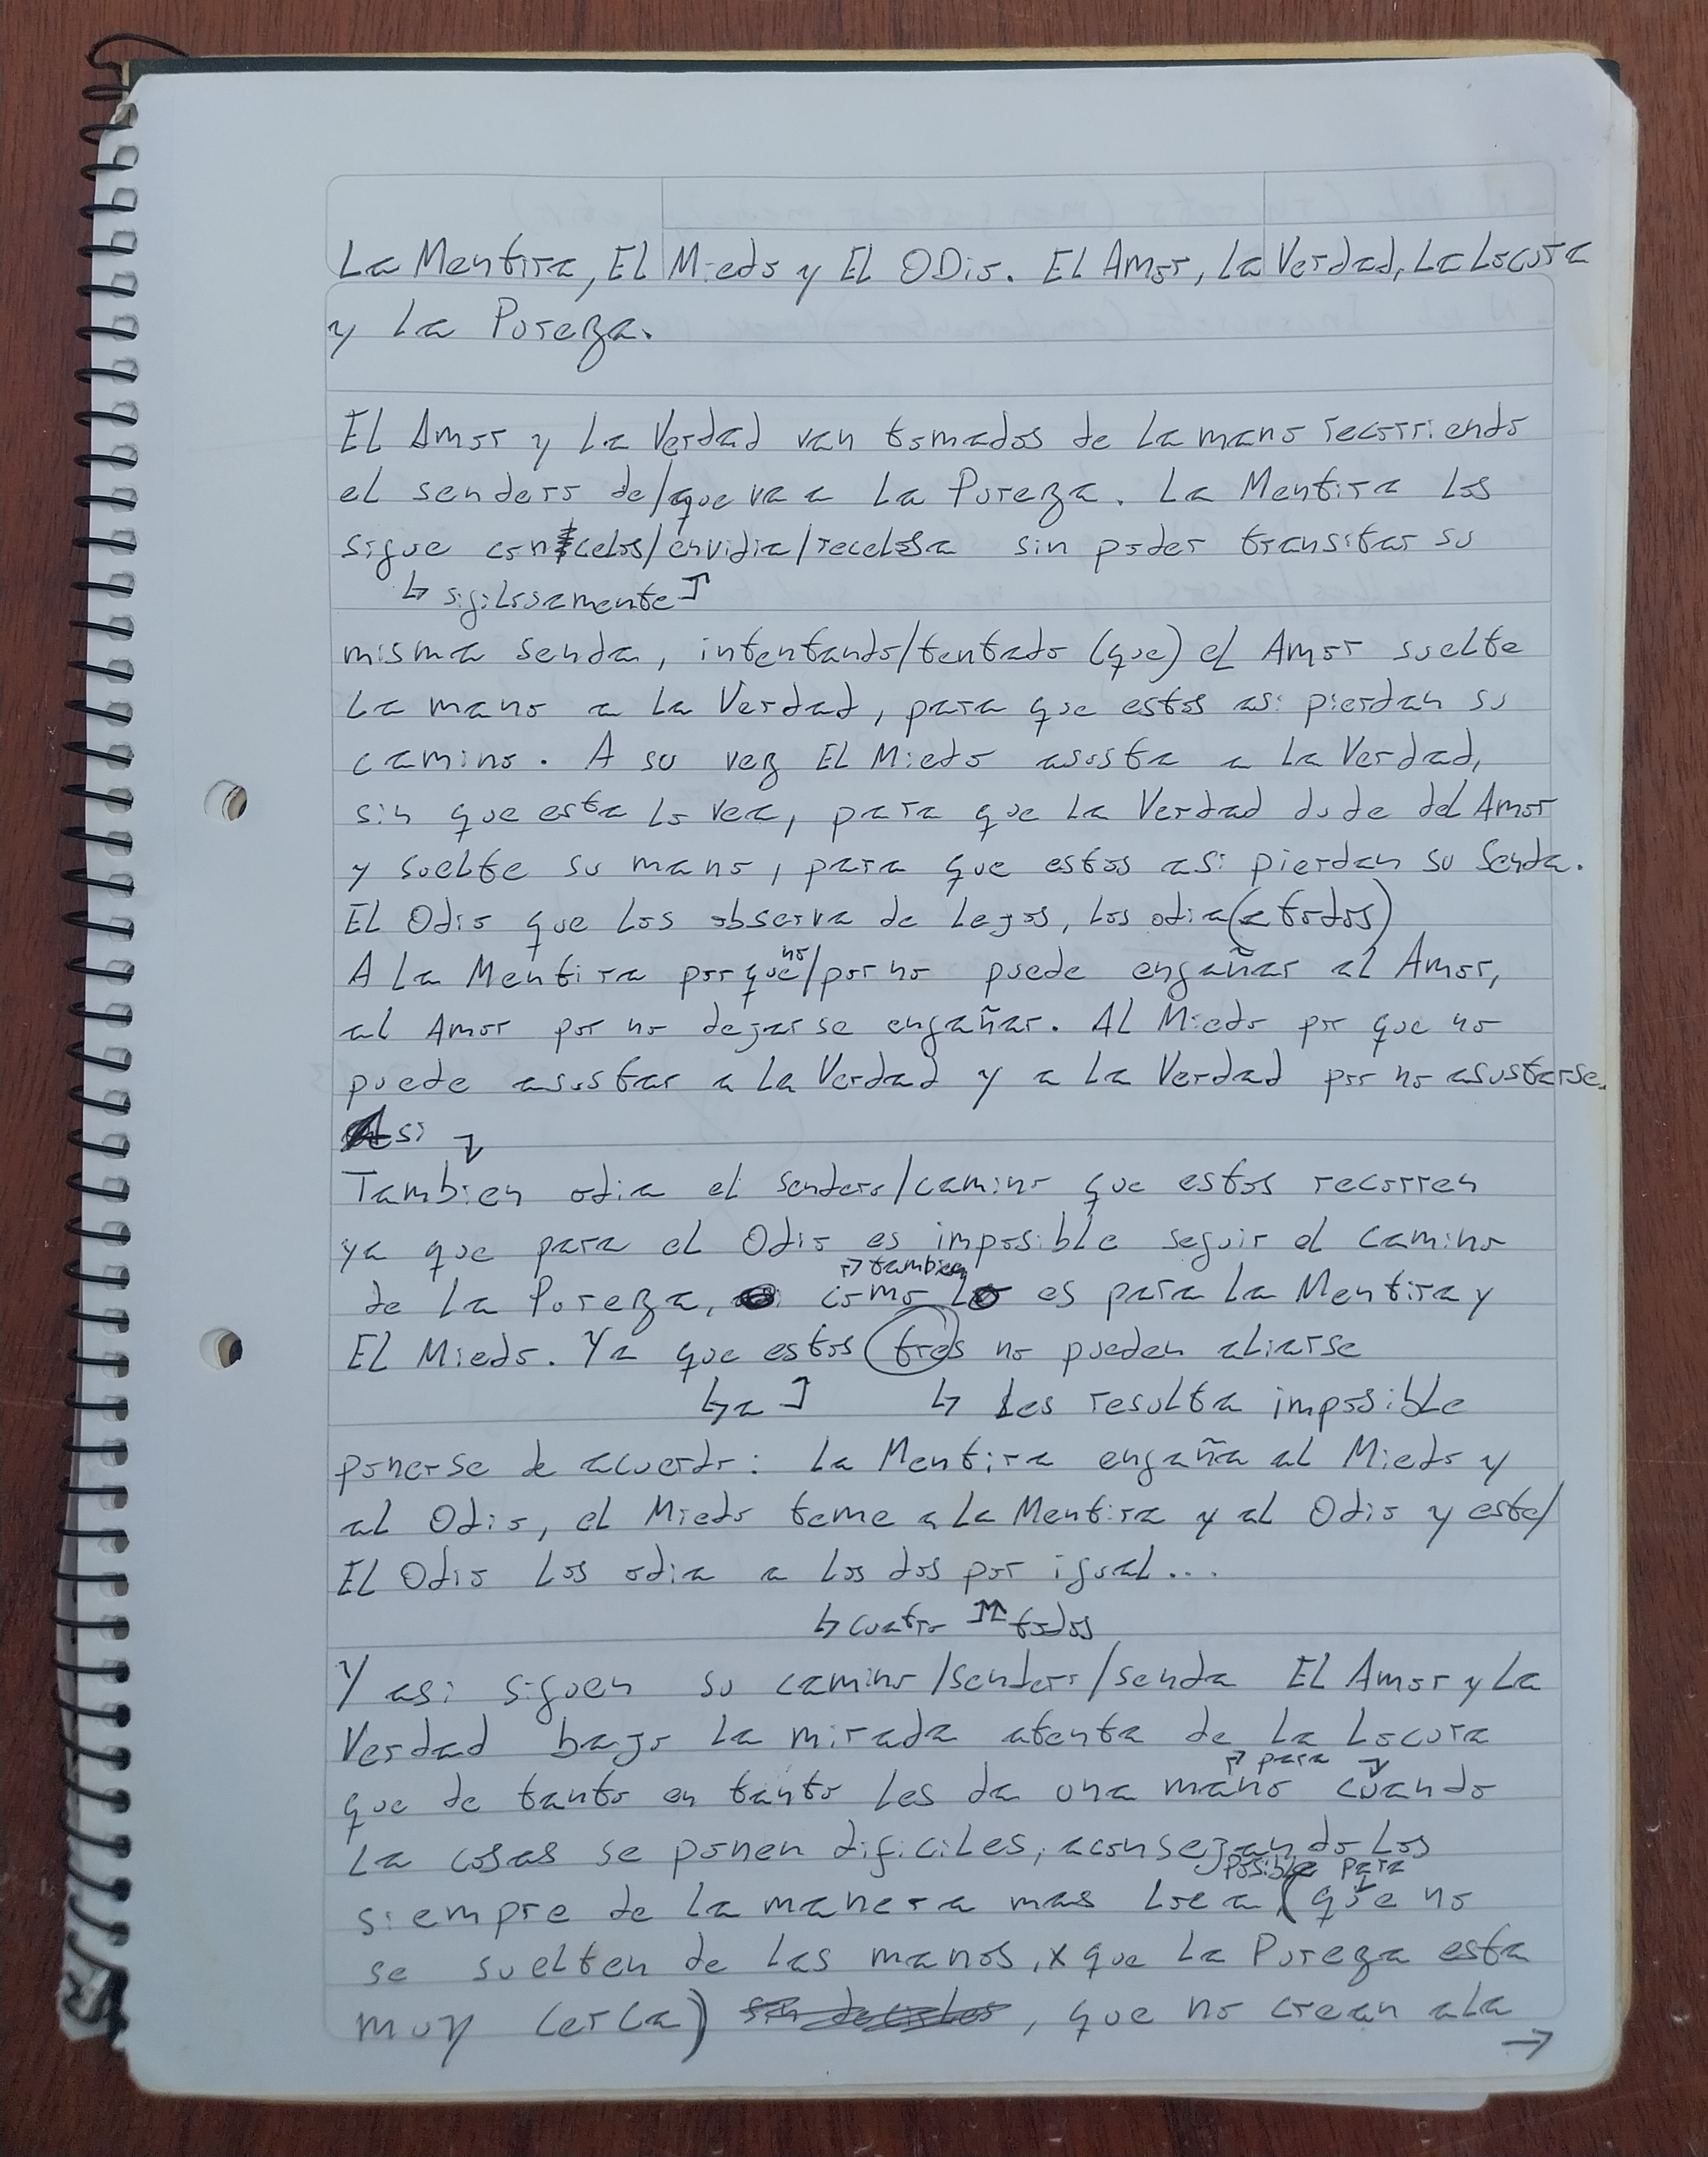 La Mentira, El Miedo y El ODio. El Amor, La Verdad, La Locura
y La Pureza.
El Amor y La Verdad van tomados de La mano recorriendo
el sendero de/que va a La Pureza. La Mentira Los
sigue con celos/envidia/recelosa sin poder transitar su
↳ sigilosamente ↴
misma senda, intentando/tentado (que) el Amor suelte
La mano a La Verdad, para que estos asi pierdan su
camino. A su vez El Miedo asusta a La Verdad,
sin que esta Lo vea, para que La Verdad dude del Amor
y suelte su mano, para que estos asi pierdan su Senda.
El Odio que Los observa de Lejos, Los odia (a todos)
no
A La Mentira porque/por no puede engañar al Amor,
al Amor por no dejarse engañar. AL Miedo por que no
puede asustar a La Verdad y a La Verdad por no asustarse.
Asi
Tambien odia el sendero/camino que estos recorren
ya que para el Odio es imposible seguir el camino
↱ tambien
de La Pureza, como Lo es para La Mentira y
El Miedo. Ya que estos tres no pueden aliarse
↳ a ↴ ↳ Les resulta imposible
ponerse de acuerdo: La Mentira engaña al Miedo y
al Odio, el Miedo teme a La Mentira y al Odio y este/
El Odio Los odia a Los dos por igual...
↳ cuatro todos
Y asi siguen su camino/sendero/senda El Amor y La
Verdad bajo La mirada atenta de La Locura
↱ para
que de tanto en tanto Les da una mano cuando
La cosas se ponen dificiles, aconsejandoLos
posible para
siempre de La manera mas Loca (que no
se suelten de Las manos, x que La Pureza esta
muy cerca) , que no crean a La
→